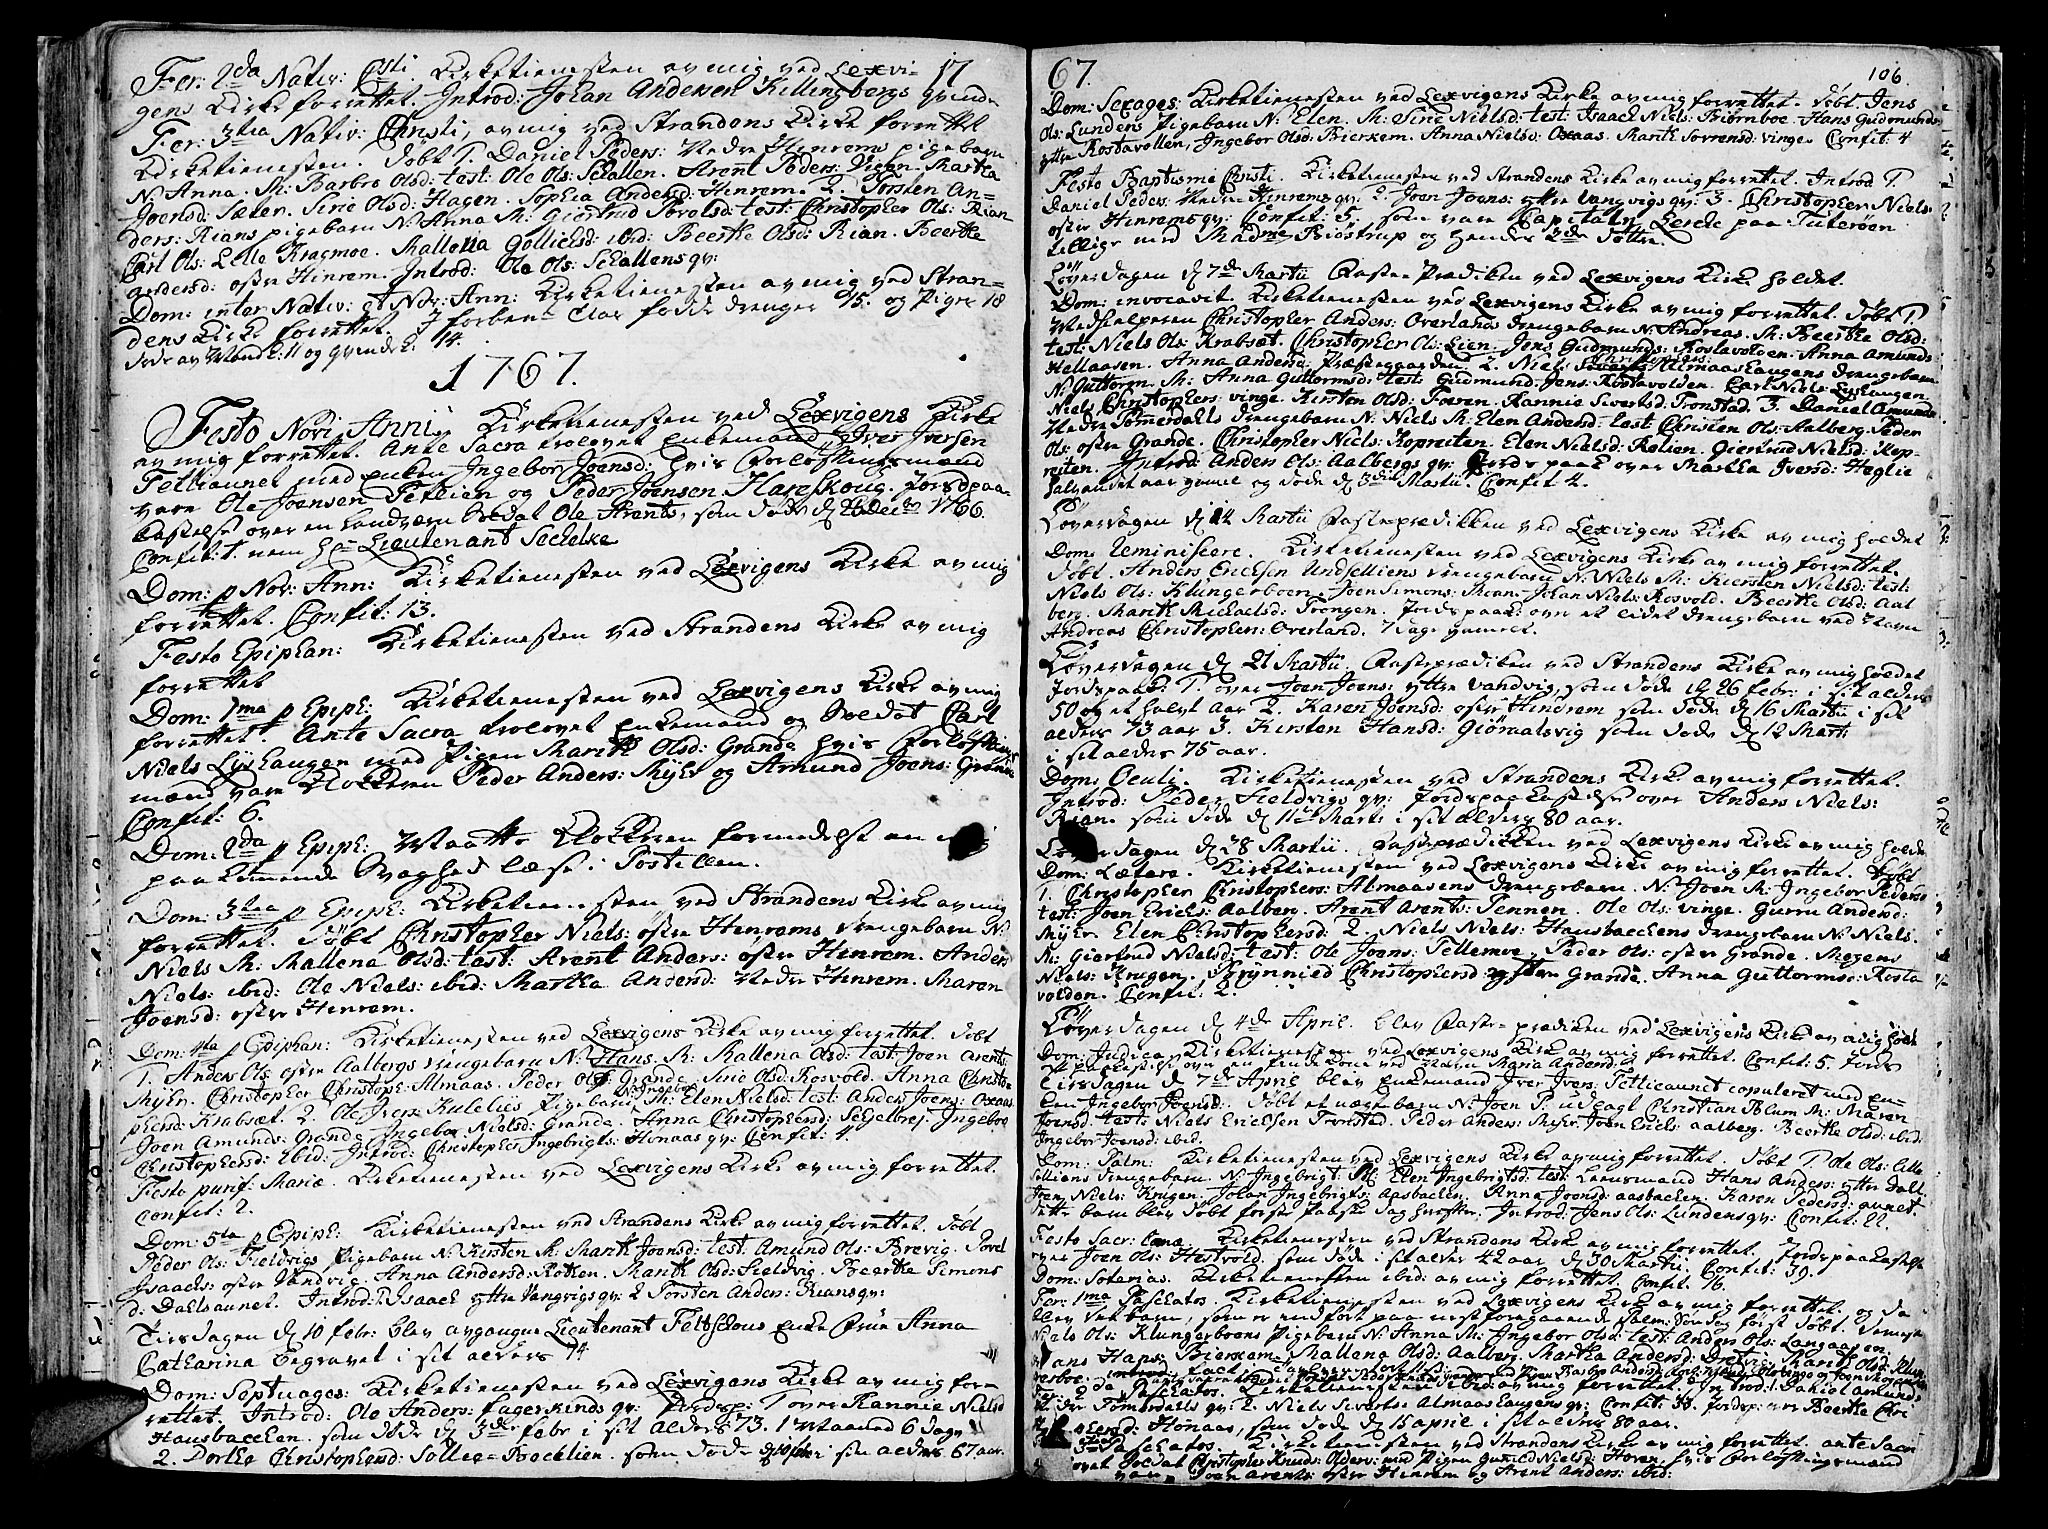 17
Fer: 2da Nativ: Christi. Kirketienesten av mig ved Lexvi-
gens Kirke forrettet. Introd: Johan Andersen Killingbergs qvinde
Fer: 3tia Nativ: Christi, av mig ved Strandens Kirke forrettet
Kirketienesten. Døbt 1. Daniel Peders: Nedre Hinrems pigebarn
N. Anna. M: Barbro Olsd: test: Ole Ols: Schallen. Arent Peders: Vigen. Martha
Joensd: Sæter. Sirie Olsd: Hagen. Sophia Andersd: Hinrem. 2. Torsten An-
ders: Rians pigebarn N: Anna M: Giertrud test: Christopher Ols: Rian
Carl Ols: Lille Kragmoe. Mallena ibid: Beerthe Olsd: Rian. Beerthe
Andersd: østre Hinrem. Introd: Ole Ols: Schallens qv:
Dom: inter Nativ: et Nov: Ann: Kirketienesten av mig ved Stran-
dens Kirke forrettet. I forben: Aar fødde drenger 15. og Piger 18
døde av Mandk: 11 og qvindek: 14.
1767.
Festo Novi Anni, Kirketienesten ved Lexvigens Kirke
av mig forrettet. Ante Sacra trolovet Enkemand Iver Iversen
Tetliaunet med enken Ingebor Joensd: hvis Forløfningsmænd
vare Ole Joensen Tetlien og Peder Joensen Harreskoug. Jordspaa-
kastelse over en Landværn Soldat Ole Arents, som døde d: decbr 1766.
Confit: 1. nem: Hr Lieutenant Sechelke
Dom: p Nov: Ann: Kirketienesten ved Lexvigens Kirke av mig
forrettet. Confit: 13.
Festo Epiphan: Kirketienesten ved Strandens Kirke av mig
forrettet
Dom: 1ma p Epiph: Kirketienesten ved Lexvigens Kirke av mig
forrettet. Ante Sacra trolovet enkemand og Soldat Carl
Niels Lyshaugen med Pigen Marith Olsd: Grande hvis Forløfnings
mænd vare Klokkeren Peder Anders: Myhr og Amund Joens: Grande
Confit: 6.
Dom: 2da p Epiph: Maatte Klokkeren formedelst en mig
paakommende Svaghed læse i Postillen.
Dom: 3tia p Epiph: Kirketienesten ved Strandens Kirke av mig
forrettet. Døbt Christopher Niels: østre Henrems drengebarn N:
Niels M: Mallena Olsd: test: Arent Anders: østre Hinrem. Anders
Niels: ibid: Ole Niels: ibid: Martha Andersd: Nedre Hinrem. Maren
Joensd: østre Hinrem.
Dom: 4ta p Epiphan: Kirketienesten ved Lexvigens Kirke av mig forrettet. Døbt
1. Anders Ols: østre Aalbergs drengebarn N: Hans. M: Mallena Olsd: test: Joen Arents
Myhr. Christopher Christoph: Almaas. Peder Ols: Grande. Sirie Olsd: Rosvold. Anna Christo-
phersd: Krabsæt. 2. Ole Ivers: Kulelies Pigebarn N: Ingebor M: Elen Nielsd: test: Anders Joens: Oxaas
Joen Amunds: Grande. Ingebor Nielsd: Grande. Anna Christophersd: Schielbrej. Ingebor
Christophersd: ibid: Introd: Christopher Ingebrigts: Honaas qv: Confit: 4.
Festo purif: Mariæ. Kirketienesten ved Lexvigens Kirke av mig forrettet.
Confit: 2.
Dom: 5ta p Epiph: Kirketienesten ved Strandens Kirke av mig forrettet. Døbt
Peder Ols: Fieldvigs Pigebarn N: Kirsten M: Marith Joensd: test: Amund Ols: Brevig. Povel
Isaachs: østre Vandvig. Anna Andersd: Rotken. Marith Olsd: Fieldvig. Beerthe Simons
d: Dahlsaunet. Introd: 1 Isaach yttre Vangvigs qv: 2 Torsten Anders: Rians qv:
Tirsdagen d: 10 febr: blev avgangne Lieutenant enke Frue Anna
Catharina Begravet i sit alders 74
Dom: Septuages: Kirketienesten ved Lexvigens Kirke av mig for-
rettet. Introd: Ole Anders: Fagerlinds qv: Jordsp: 1 over Rannie Nielsd
Hansbacchen. som døde d: 3de febr i sit alders 73. 1 Maaned 6 dage
2. Dorthe Christophersd: Sollie-Bachelien. som døde i sin alders 67 aar.
67.
106
Dom: Sexages: Kirketienesten ved Lexvigens Kirke av mig forrettet. døbt Jens
Ols: Lundens Pigebarn N: Elen. M: Sirie Nielsd: test: Isaach Niels: Biørnboe. Hans Gudmunds:
yttre Rostavollen, Ingebor Olsd: Bierkem. Anna Nielsd: Oxaas. Marith Sorrensd: vinge Confit: 4
Festo Baptismi Christi. Kirketienesten ved Strandens Kirke av mig forrettet. Introd 1.
Daniel Peders: Nedre Hinrems qv: 2 Joen Joens: yttre Vangvigs qv: 3. Christopher Niels
østre Hinrems qv: Confit: 5. som vare Capitain Lerche paa Tuterøen
tillige med Madme Biøstrup og hendes 2de døttre.
Løverdagen d: 7de Martii Faste-Prædiken ved Lexvigens Kirke holdet.
Dom: invocavit. Kirketienesten ved Lexvigens Kirke av mig forrettet. døbt 1.
Medhielperen Christopher Anders: Overlands drengebarn N: Andreas. M: Beerthe Olsd:
test: Niels Ols: Krabsæt. Christopher Ols: Lien. Jens Gudmunds: Rostavolden. Anna Amunds
Hellaasen. Anna Andersd: Præstegaarden. 2. Niels Almaashaugens drengebarn
N: Guttorm. M: Anna Guttormsd: test: Gudmund Jens: Rostavolden. Carl Niels: Lyshaugen
Niels Christophers: vinge. Kirsten Olsd: Foeren. Rannie Sivertsd: Tronstad. 3. Daniel Amunds
Nedre Tømmerdahls drengebarn N: Niels M: Elen Andersd: test: Christen Ols: Aalberg. Peder
Ols: østre Grande. Christopher Niels: Kopreiten. Elen Nielsd: Rølien. Giertrud Nielsd: Kop-
reiten. Introd: Anders Ols: Aalbergs qv: Jordspaak: over Martha Iversd: Haglie
halvandet aar gamel og døde d: 3die Martii. Confit 4.
Løverdagen d: 14 Martii Fasteprædikken ved Lexvigens Kirke av mig holdet
Dom: Reminiscere. Kirketienesten ved Lexvigens Kirke av mig forrettet.
Døbt. Anders Ericksen Undsetliens drengebarn N: Niels M: Kiersten Nielsd: test:
Niels Ols: Klungerboen. Joen Simons: Moan. Johan Niels: Rosvold. Beerthe Olsd: Aal
berg. Marith Michaelsd: Trongen. Jordspaak: over et lidet drengebarn ved Navn
Andreas Christophers: Overland. 7 dage gammel.
Løverdagen d: 21 Martii. Fasteprædiken ved Strandens Kirke av mig holdet
Jordspaak: 1. over Joen Joens: yttre Vandvig, som døde d: 26 febr: i sit alders
50 og et halvt aar 2. Karen Joensd: østre Hindrem som døde d: 16 Martii i sit
alders 73 aar 3. Kirsten Hansd: Giøraalsvig som døde d: 12 Marti
i sit alders 75 aar.
Dom: Oculi. Kirketienesten ved Strandens Kirke av mig forrettet.
Introd: Peder Fieldvigs qv: Jordspaakastelse over Anders Niels:
Rian. som døde d: 11te Marti i sit alders 80 aar.
Løverdagen d: 28 Martii. Fasteprædikken ved Lexvigens Kirke av mig holdet
Dom: Lætare. Kirketienesten ved Lexvigens Kirke av mig forrettet. Døbt
1. Christopher Christophers: Almaasens drengebarn. N: Joen M: Ingebor Pedersd
test: Joen Ericks: Aalberg. Arent Arents: Tennen. Ole Ols: vinge. Gurru Andersd:
Myhr. Elen Christophersd: 2. Niels Niels: Hausbacchens drengebarn N: Niels.
M: Giertrud Nielsd: test: Ole Joens: Tellemoe. Peder Ols: østre Grande. Mogens
Niels: Krugen. Brynnild Christophersd: østre Grande. Anna Guttormsd: Rosta
volden. Confit: 2.
Løverdagen d: 4de April. blev Faste-prædiken ved Lexvigens Kirke av mig holdt
Dom: Judica. Kirketienesten ved Lexvigens Kirke av mig forrettet. Confit: 5. Jords
paakastelse over en Inde Kone ved Navn Maria Andersd:
Tirsdagen d: 7de April blev enkemand Iver Ivers: Tetlieaunet copuleret med en-
ken Ingebor Joensd: Døbt et uægte barn N: Joen P. udlagt Christian Blum M: Maren
Joensd: test: Niels Erichsen Tronstad. Peder Anders: Myhr. Joen Ericks: Aalberg. Beerthe Olsd: ibid.
Ingebor Joensd: ibid.
Dom: Palm: Kirketienesten ved Lexvigens Kirke av mig forrettet. Døbt 1. Ole Ols:
drengebarn. N: Ingebrigt. M: Elen Ingebrigtsd: test: Leensmand Hans Anders: yttre
Joen Niels: Krugen. Johan Ingebrigts: Aasbachen. Anna Joensd: Aasbachen. Karen Pedersd: aunet.
dette barn blev døbt første Paaske dag Introd: Jens Ols: Lundens qv: Confit: 22.
Festo Sacr: Cænæ. Kirketienesten ved Strandens Kirke av mig forrettet. Jordspaakastelse
over Joen Ols: Hestvold. som døde i sit alder 42 aar d: 30 Martii. Confit: 39.
Dom: Soterias. Kirketienesten ibid: av mig forrettet. Confit. 16.
Fer: 1ma Paschatos. Kirketienesten ved Lexvigens Kirke av mig forrettet. og da
blev det barn, som er indført paa nestforegaaende Palm: Søndag først døbt. dernest
Niels Ols: Klungerboens Pigebarn N: Anna M: Ingebor Olsd: test: Anders Ols: Langaasen.
Hans Hans: Bierkem. Mallena Olsd: Aalberg. Martha Andersd: Marith Olsd:
Fer: 2da Paschatos. Kirketienesten ibid: av mig forrettet. Introd: 1. Daniel Amunds
Nedre Tømerdahls qv: 2. Niels Siverts: Almaashaugens qv: Confit: 38. Jordsp: over Beerthe Chri
stophersd: Honaas, som døde d: 15 april i sit alders 80 aar.
Paschatos. Kirketienesten ved Strandens Kirke av mig forrettet. ante Sacr
trolovet Soldat Christopher Knuds: med Pigen Gunild Nielsd: Hoven, hvis Forløfningsmænd
vare Joen Arents: østre Hinrem og Arent Anders: ibid: